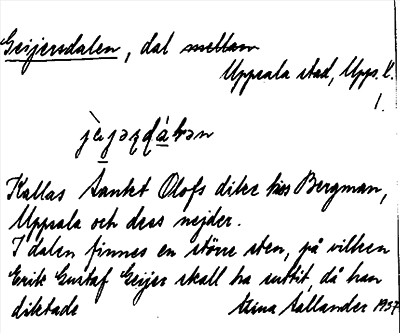 Geijersdalen, dal mellan
Uppsala stad, Upps. l.
1.
jɛ̀jəʂɖáƚən
Kallas Sankt Olofs dike hos Bergman,
Uppsala och dess nejder.
I dalen finnes en större sten, på vilken
Erik Gustaf Geijer skall ha suttit, då han
diktade Stina Sallander 1937